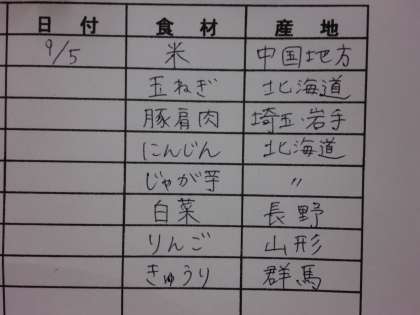 日付 食材 産地
9/5 米 中国地方
玉ねぎ 北海道
豚肩肉 埼玉・岩手
にんじん 北海道
じゃが芋 〃
白菜 長野
りんご 山形
きゅうり 群馬